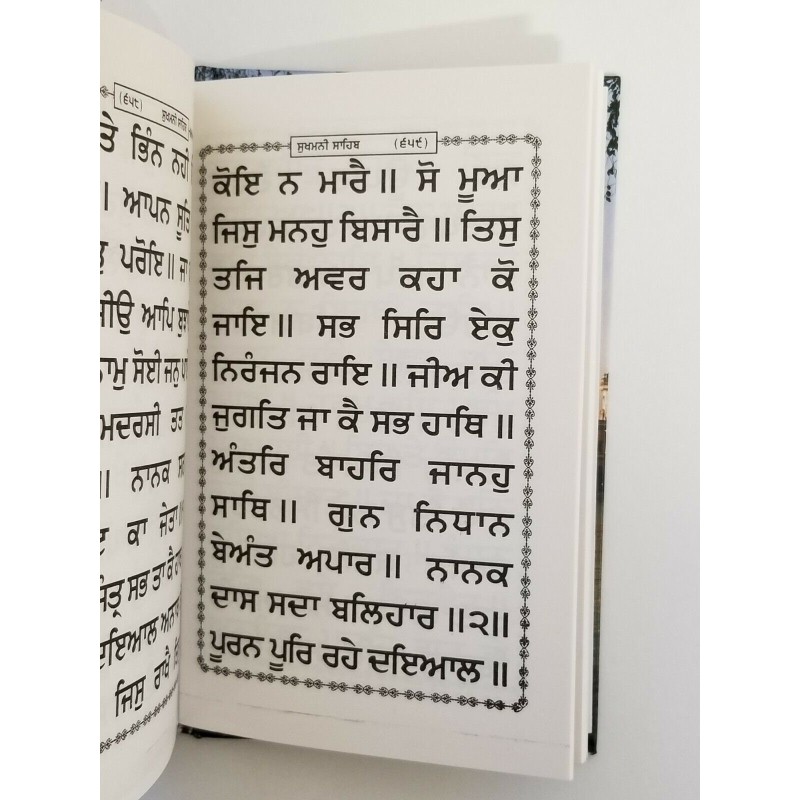 (੬੫੮) ਸੁਖਮਨੀ ਸਾਹਿਬ
ਤੇ ਭਿੰਨ ਨਹੀ
। ਆਪਨ ਸੂਤਿ
ਪਰੋਇ॥ ਜਾ
ਜੀਉ ਆਪਿ
ਨਾਮੁ ਸੋਈ ਜਨੁ
ਮਦਰਸੀ ਤਤ
॥ ਨਾਨਕ
ਕਾ ਜੇਤਾ॥
ਸਭ ਤਾ ਕੈ
ਦਇਆਲ
ਜਿਸੁ ਰਾਖੈ
ਸੁਖਮਨੀ ਸਾਹਿਬ (੬੫੯)
ਕੋਇ ਨ ਮਾਰੈ॥ ਸੋ ਮੂਆ
ਜਿਸੁ ਮਨਹੁ ਬਿਸਾਰੈ॥ ਤਿਸੁ
ਤਜਿ ਅਵਰ ਕਹਾ ਕੋ
ਜਾਇ॥ ਸਭ ਸਿਰਿ ਏਕੁ
ਨਿਰੰਜਨ ਰਾਇ॥ ਜੀਅ ਕੀ
ਜੁਗਤਿ ਜਾ ਕੈ ਸਭ ਹਾਥਿ॥
ਅੰਤਰਿ ਬਾਹਰਿ ਜਾਨਹੁ
ਸਾਥਿ॥ ਗੁਨ ਨਿਧਾਨ
ਬੇਅੰਤ ਅਪਾਰ॥ ਨਾਨਕ
ਦਾਸ ਸਦਾ ਬਲਿਹਾਰ॥੨॥
ਪੂਰਨ ਪੂਰਿ ਰਹੇ ਦਇਆਲ॥